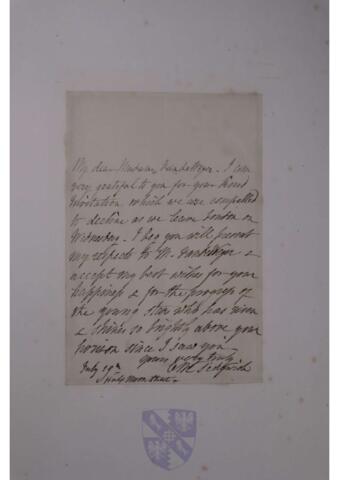 My dear Madam Vandeweyer. I am
very grateful to you for your kind
invitation which we are compelled
to decline as we leave London on
Wednesday. I beg you will present
my respects to M. Vandeweyer &
accept my best wishes for your
happiness & for the progress of
the young star who has risen
& shines so brightly above your
horison since I saw you
Yours very truly
C M Sedgwick
July 19th
Half moon Street